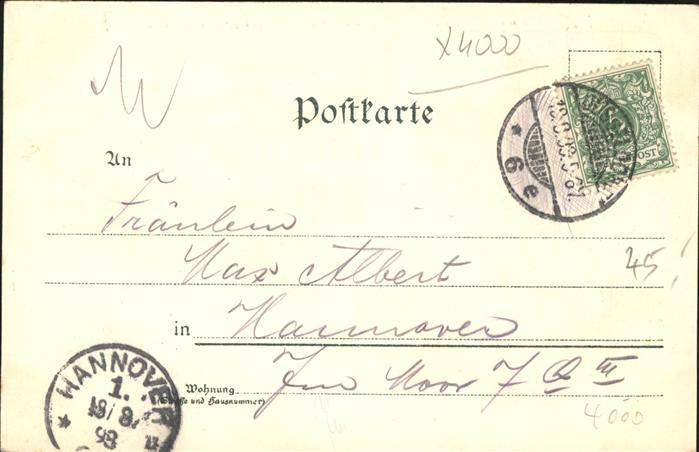 x4000
Postkarte
An
Fräulein
Max Albert
45
in Hannover
Wohnung
(Straße und Hausnummer)
Im Moor 7 Q III
4000
HANNOVER
1.
* 9 e
POST